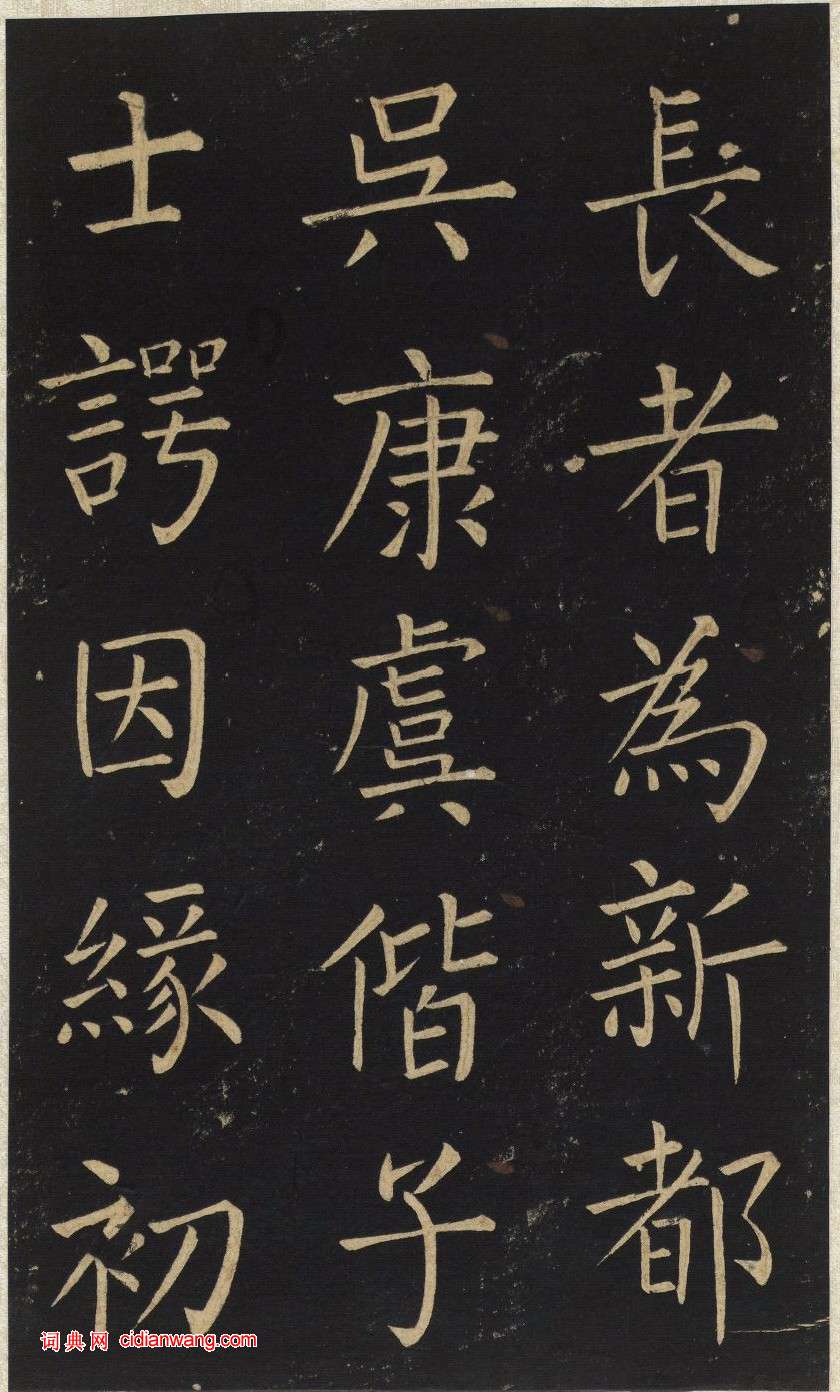 長者為新都
吳康虞偕子
士諤因緣初
词典网 cidianwang.com